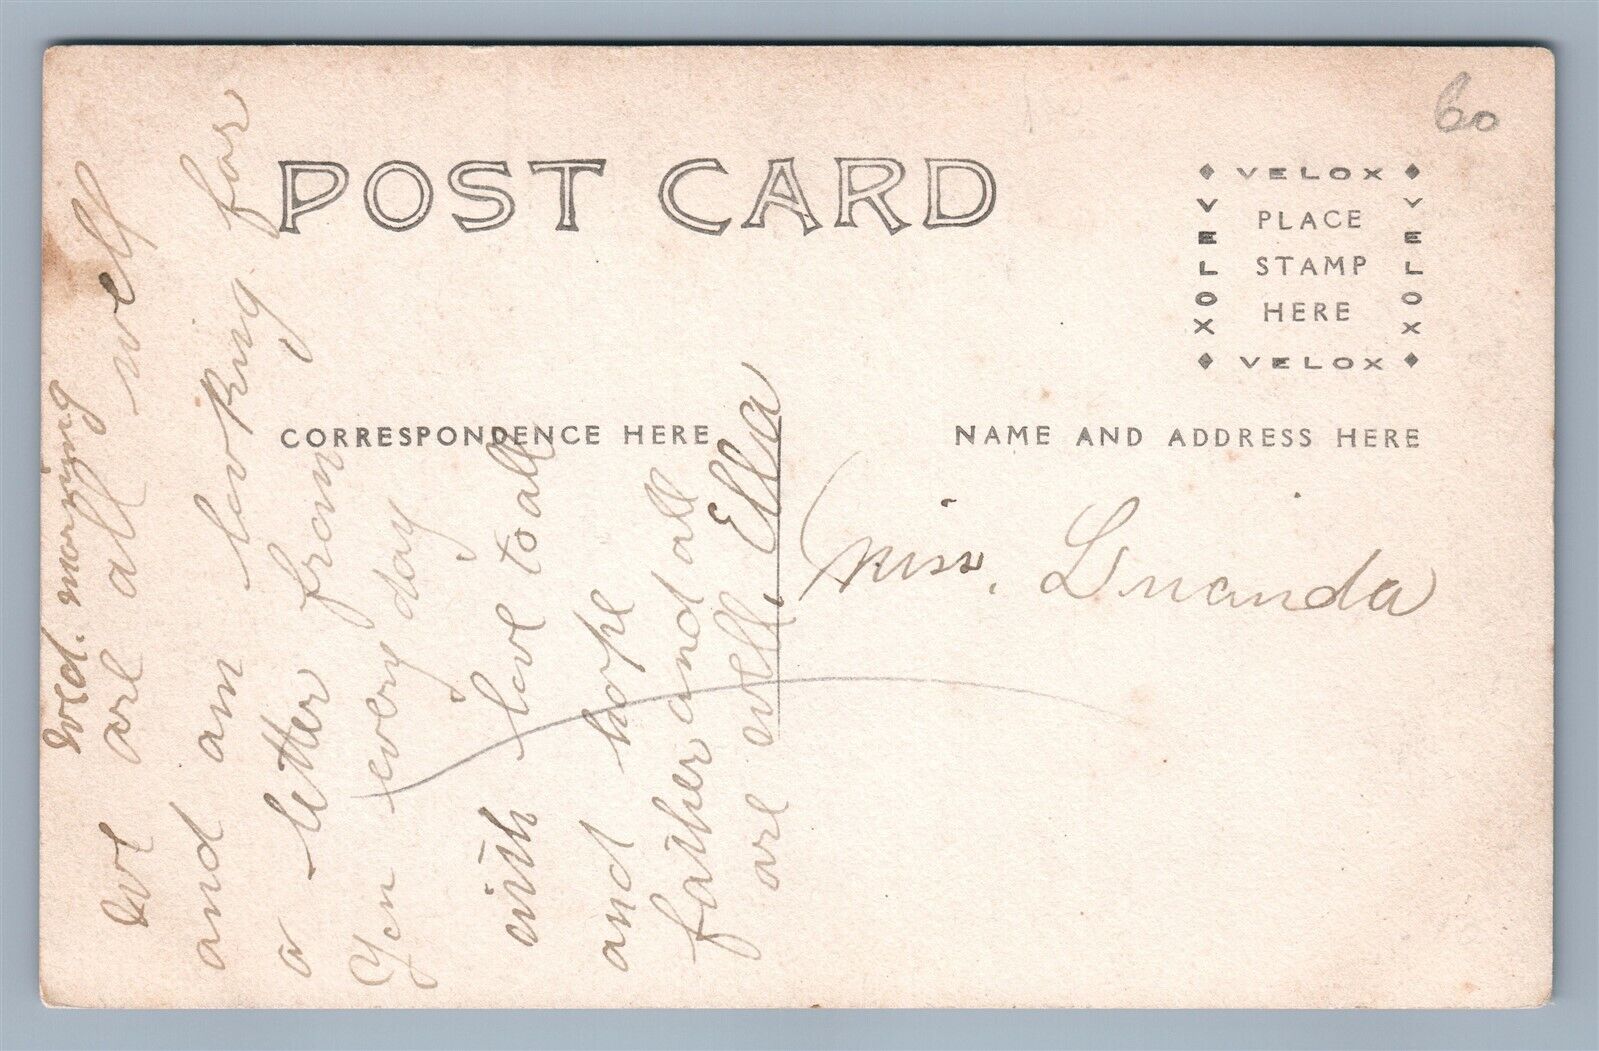 60
POST CARD
VELOX
VELOX
VELOX
VELOX
PLACE
STAMP
HERE
CORRESPONDENCE HERE
NAME AND ADDRESS HERE
Wed. morning
We are all well
and am looking for
a letter from
You every day
with love to all
and hope
father and all
are well, Ella
Miss.